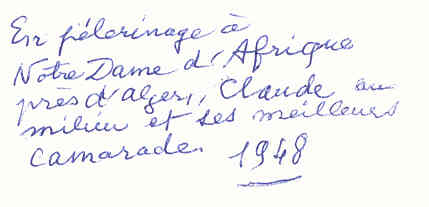 En pélerinage à
Notre Dame d'Afrique
près d'alger, Claude au
milieu et ses meilleurs
camarade.
1948